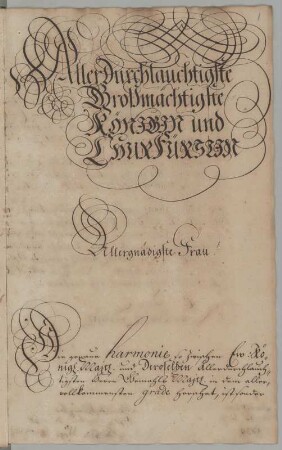 Allerdurchlauchtigste
Großmächtigste
KÖNIGIN und
CHURFÜRSTIN
Allergnädigste Frau!
Die genaue harmonie, so zwischen Ew. Kö-
nigl. Maytt. und Deroselben Allerdurchlauch-
tigsten Herrn Gemahls Maytt. in dem aller-
vollkommensten grade herrschet, ist sonder